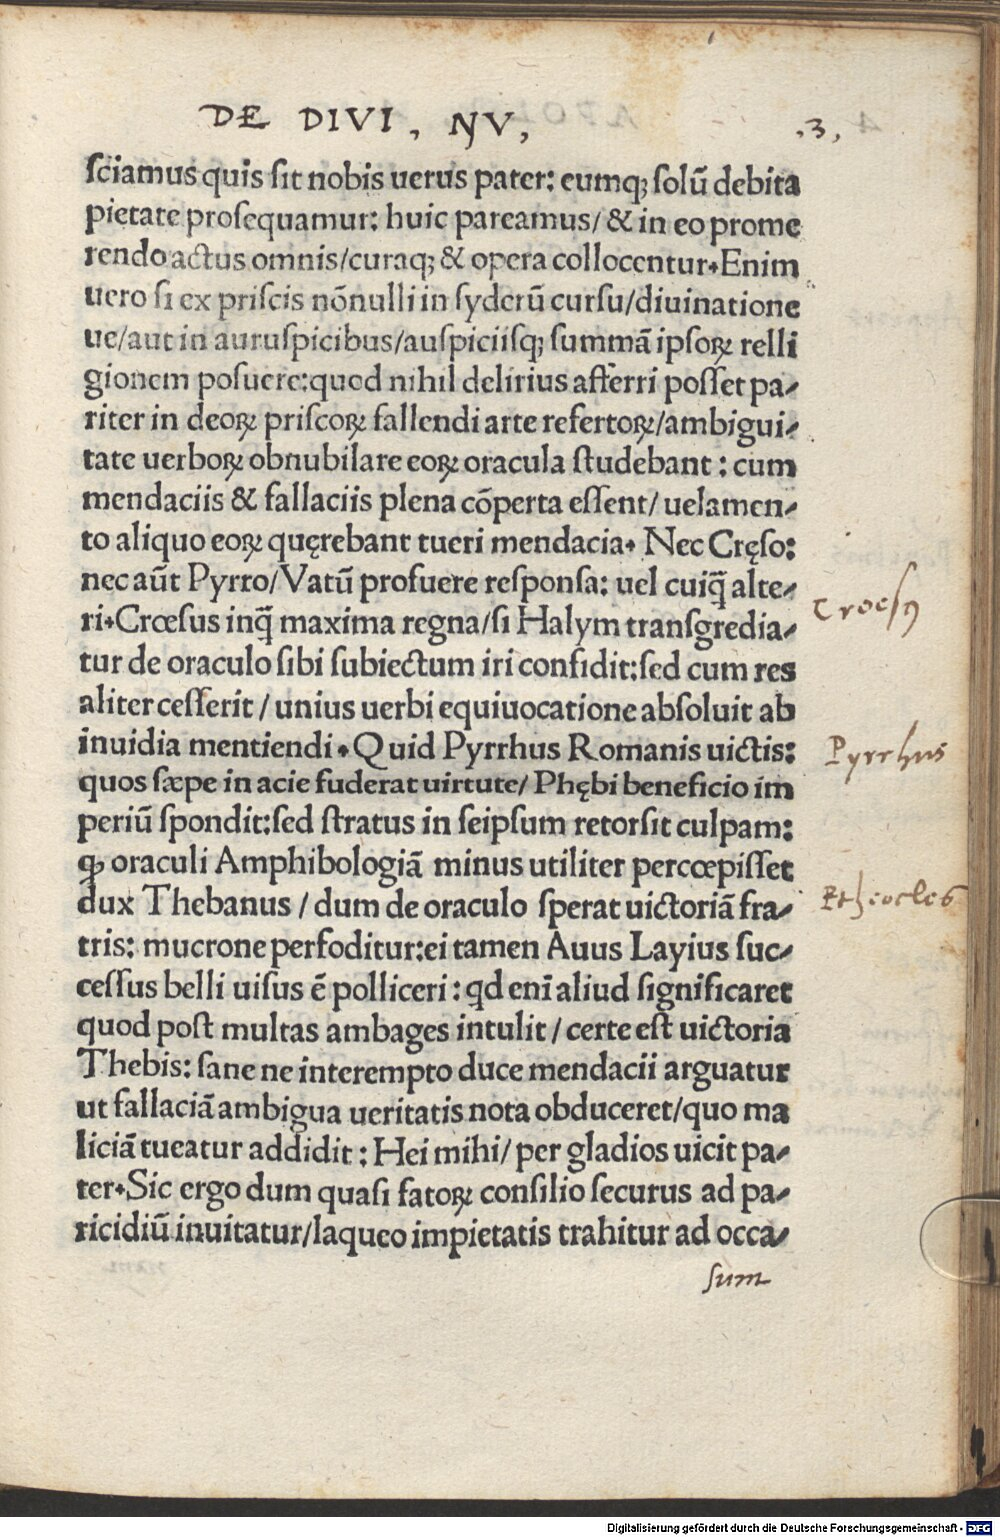 DE DIVI, NV, ,3,
sciamus quis sit nobis uerus pater: eumqꝫ solũ debita
pietate prosequamur: huic pareamus/ & in eo prome
rendo actus omnis/curaqꝫ & opera collocentur.Enim
uero si ex priscis nõnulli in syderũ cursu/diuinatione
ue/aut in auruspicibus/auspiciisqꝫ summã ipsoꝝ relli
gionem posuere:quod nihil delirius afferri posset pa-
riter in deoꝝ priscoꝝ fallendi arte refertoꝝ/ambigui-
tate uerboꝝ obnubilare eoꝝ oracula studebant : cum
mendaciis & fallaciis plena cõperta essent/ uelamen-
to aliquo eoꝝ quęrebant tueri mendacia. Nec Cręso:
nec aũt Pyrro/Vatũ profuere responsa: uel cuiq̃ alte-
ri.Crœsus inq̃ maxima regna/si Halym transgredia-
tur de oraculo sibi subiectum iri confidit:sed cum res
aliter cesserit / unius uerbi equiuocatione absoluit ab
inuidia mentiendi . Quid Pyrrhus Romanis uictis:
quos sæpe in acie fuderat uirtute/ Phębi beneficio im
periũ spondit:sed stratus in seipsum retorsit culpam:
ꝙ oraculi Amphibologiã minus utiliter percœpisset
dux Thebanus / dum de oraculo sperat uictoriã fra-
tris: mucrone perfoditur:ei tamen Auus Layius suc-
cessus belli uisus ẽ polliceri : qd enĩ aliud significaret
quod post multas ambages intulit / certe est uictoria
Thebis: sane ne interempto duce mendacii arguatur
ut fallaciã ambigua ueritatis nota obduceret/quo ma
liciã tueatur addidit : Hei mihi/ per gladios uicit pa-
ter.Sic ergo dum quasi fatoꝝ consilio securus ad pa-
ricidiũ inuitatur/laqueo impietatis trahitur ad occa-
sum
Croesꝰ
Pyrrhus
Etheocles
Digitalisierung gefördert durch die Deutsche Forschungsgemeinschaft - DFG